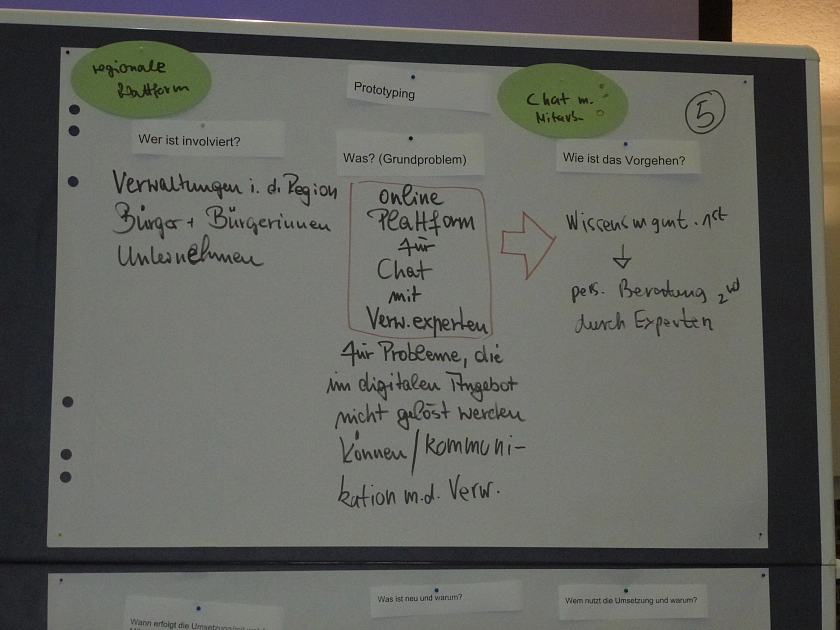 regionale
Plattform
Prototyping
Chat m.
Mitarb.
5
Wer ist involviert?
Was? (Grundproblem)
Wie ist das Vorgehen?
Verwaltungen i. d. Region
Bürger + Bürgerinnen
Unternehmen
online
Plattform
für
Chat
mit
Verw.experten
für Probleme, die
im digitalen Angebot
nicht gelöst werden
können/kommuni-
kation m.d. Verw.
Wissensmgmt. 1st
pers. Beratung 2nd
durch Experten
Was ist neu und warum?
Wem nutzt die Umsetzung und warum?
Wann erfolgt die Umsetzung